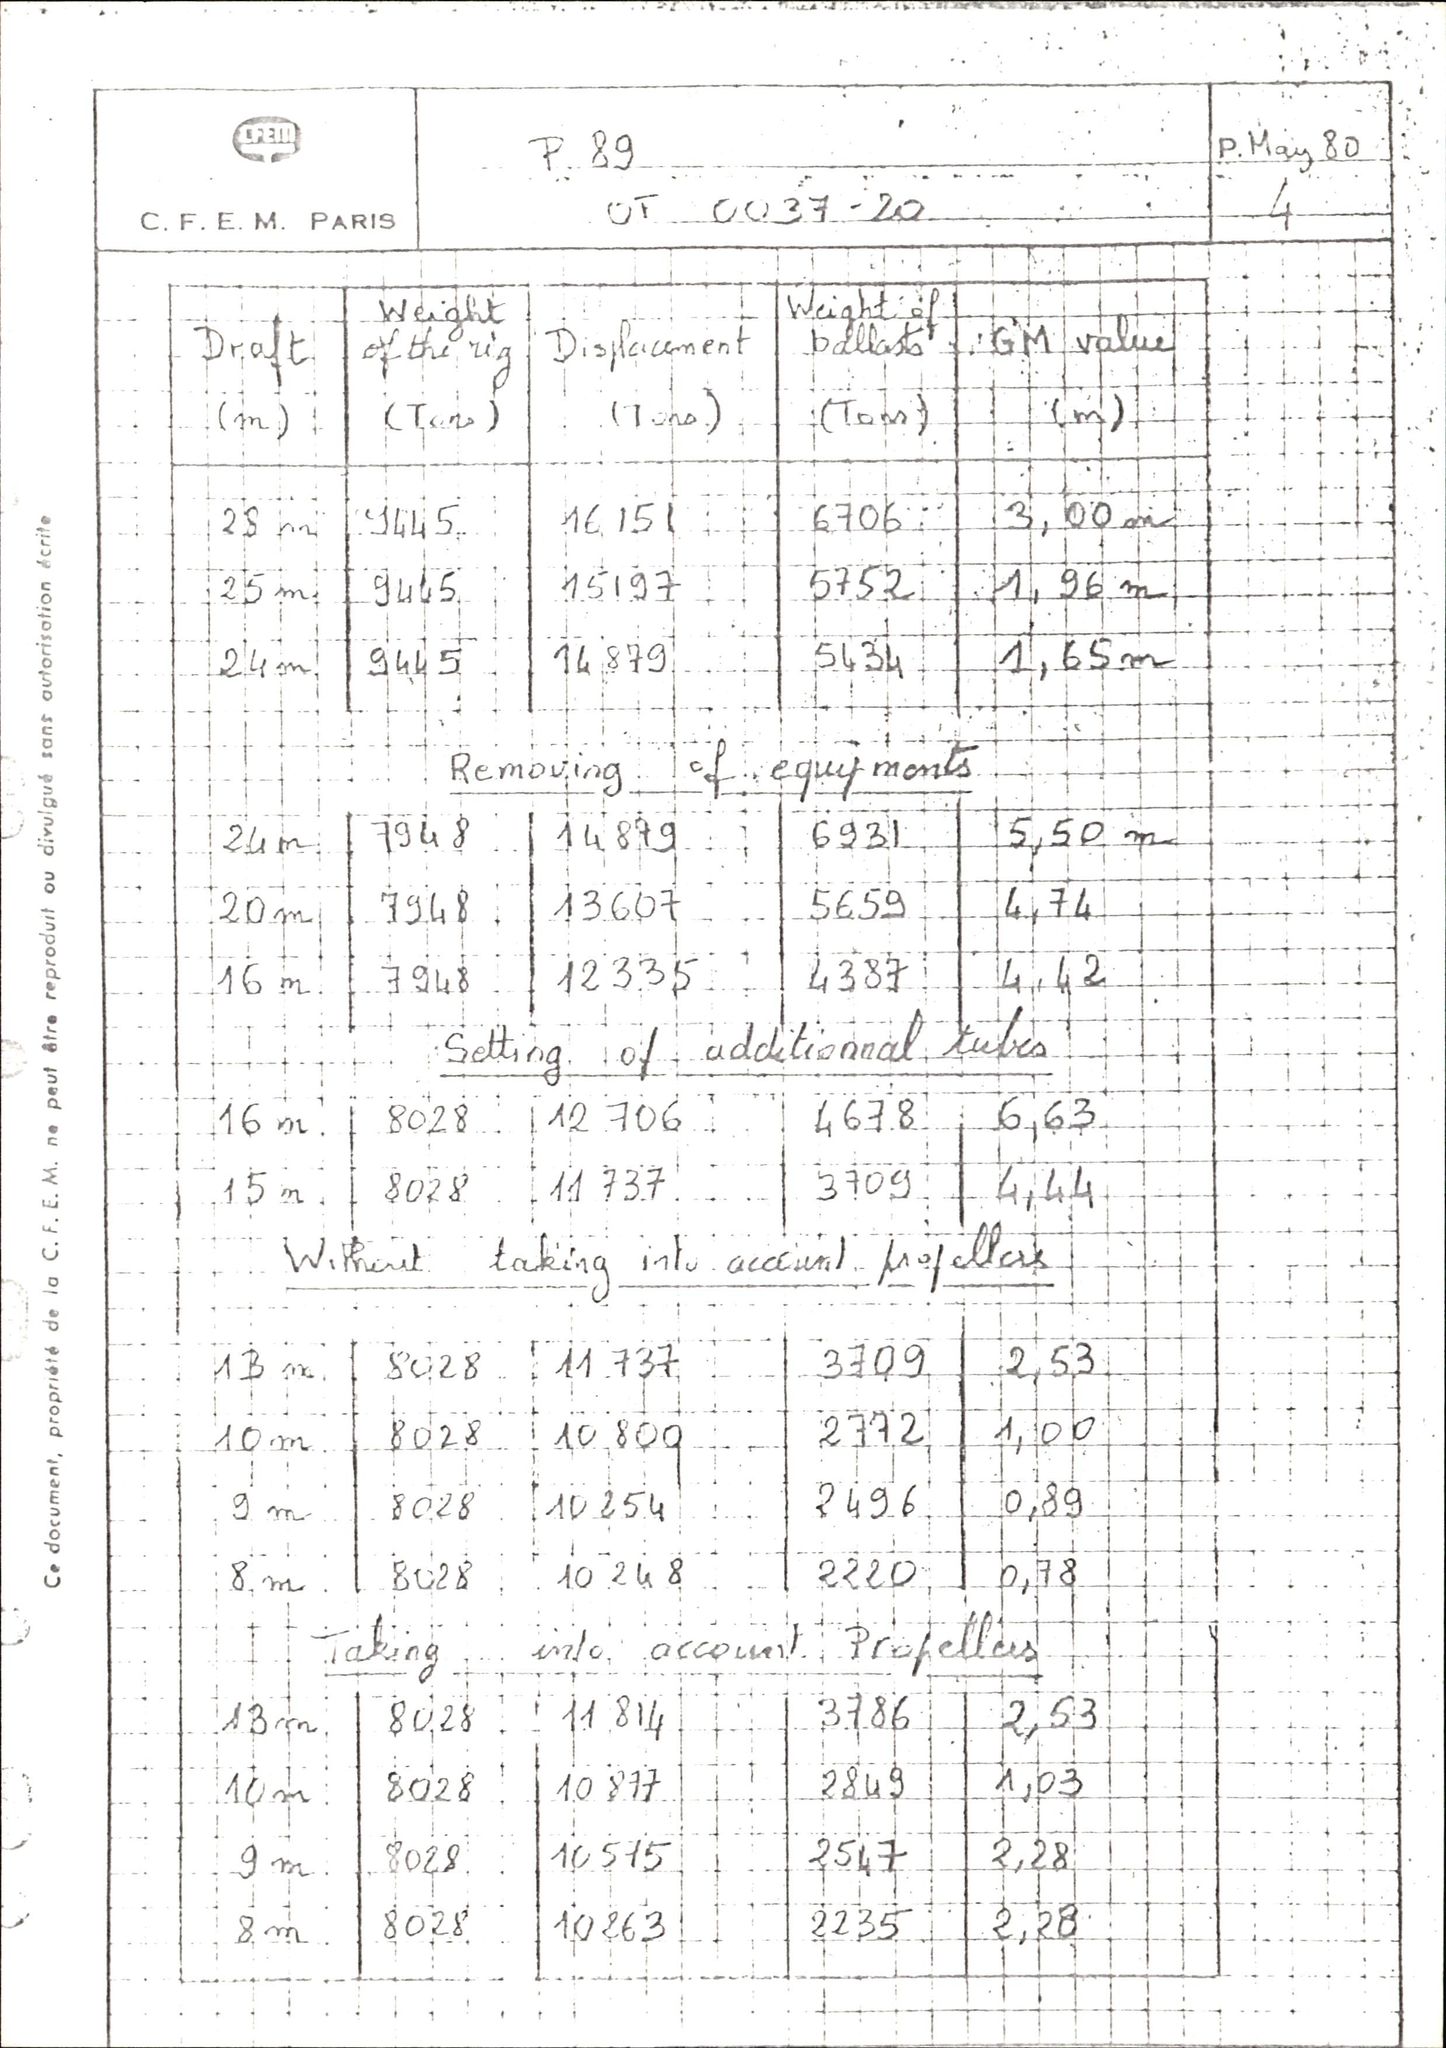 CFEM
C. F. E. M. PARIS
P. 89
OT 0037-20
P. May 80
4
Draft (m) | Weight of the rig (Tons) | Displacement (Tons) | Weight of ballasts (Tons) | GM value (m)
28 m | 9445 | 16151 | 6706 | 3,00 m
25 m | 9445 | 15197 | 5752 | 1,96 m
24 m | 9445 | 14879 | 5434 | 1,65 m
Removing of equipments
24 m | 7948 | 14879 | 6931 | 5,50 m
20 m | 7948 | 13607 | 5659 | 4,74
16 m | 7948 | 12335 | 4387 | 4,42
Setting of additionnal tubes
16 m | 8028 | 12706 | 4678 | 6,63
15 m | 8028 | 11737 | 3709 | 4,44
Without taking into account propellers
13 m | 8028 | 11737 | 3709 | 2,53
10 m | 8028 | 10800 | 2772 | 1,00
9 m | 8028 | 10254 | 2496 | 0,89
8 m | 8028 | 10248 | 2220 | 0,78
Taking into account Propellers
13 m | 8028 | 11814 | 3786 | 2,53
10 m | 8028 | 10877 | 2849 | 1,03
9 m | 8028 | 10575 | 2547 | 2,28
8 m | 8028 | 10263 | 2235 | 2,28
Ce document, propriété de la C. F. E. M. ne peut être reproduit ou divulgué sans autorisation écrite